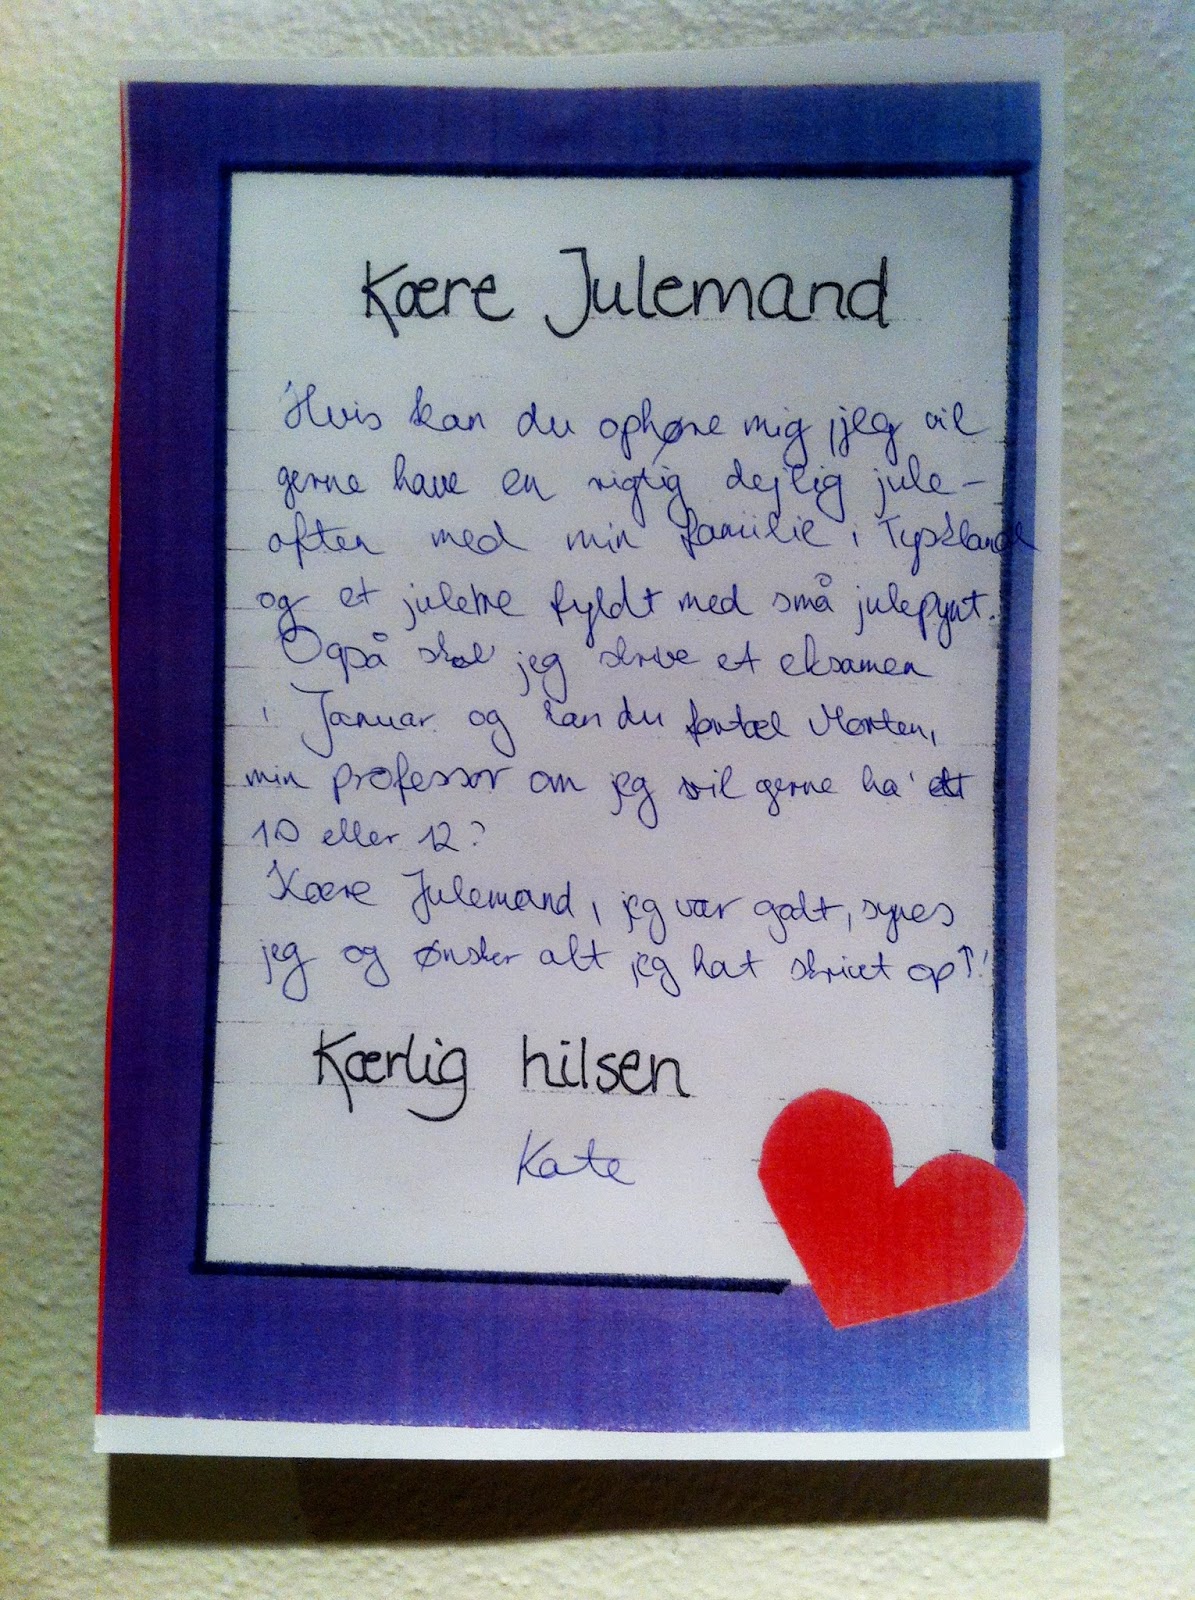 Kære Julemand
Hvis kan du ophøre mig, jeg vil
gerne have en rigtig dejlig jule-
aften med min familie i Tyskland
og et juletre fyldt med små julepynt.
Også skal jeg skrive et eksamen
i Januar og kan du fortæl Morten,
min professor om jeg vil gerne ha' et
10 eller 12?
Kære Julemand, jeg var godt, synes
jeg og ønsker alt jeg hat skrivet op↑!
Kærlig hilsen
Kate